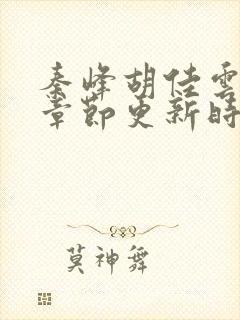 秦峰胡佳雲
章節更新時
莫神舞